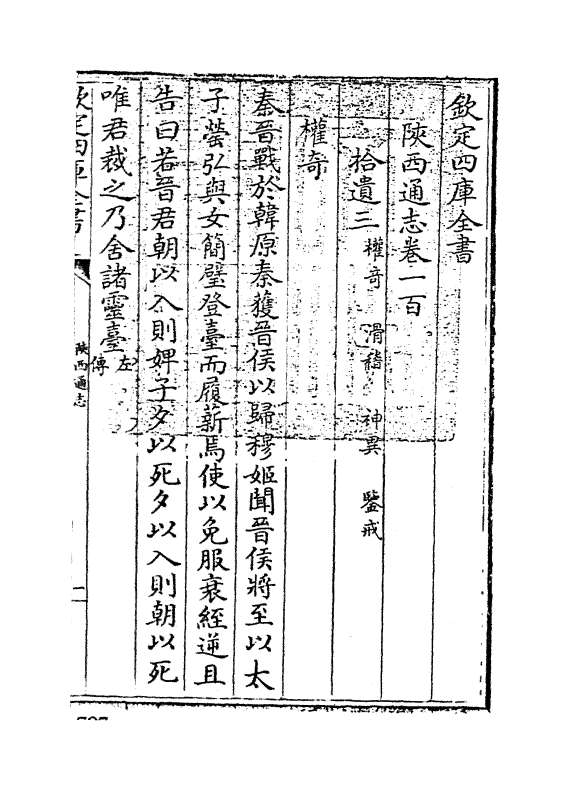 欽定四庫全書
陜西通志卷一百
拾遺三 權奇 滑稽 神異 鑒戒
權奇
秦晉戰於韓原秦獲晉侯以歸穆姬聞晉侯將至以太
子罃弘與女簡璧登臺而履薪焉使以免服衰絰逆且
告曰若晉君朝以入則婢子夕以死夕以入則朝以死
唯君裁之乃舍諸靈臺左傳
欽定四庫全書
陜西通志
一